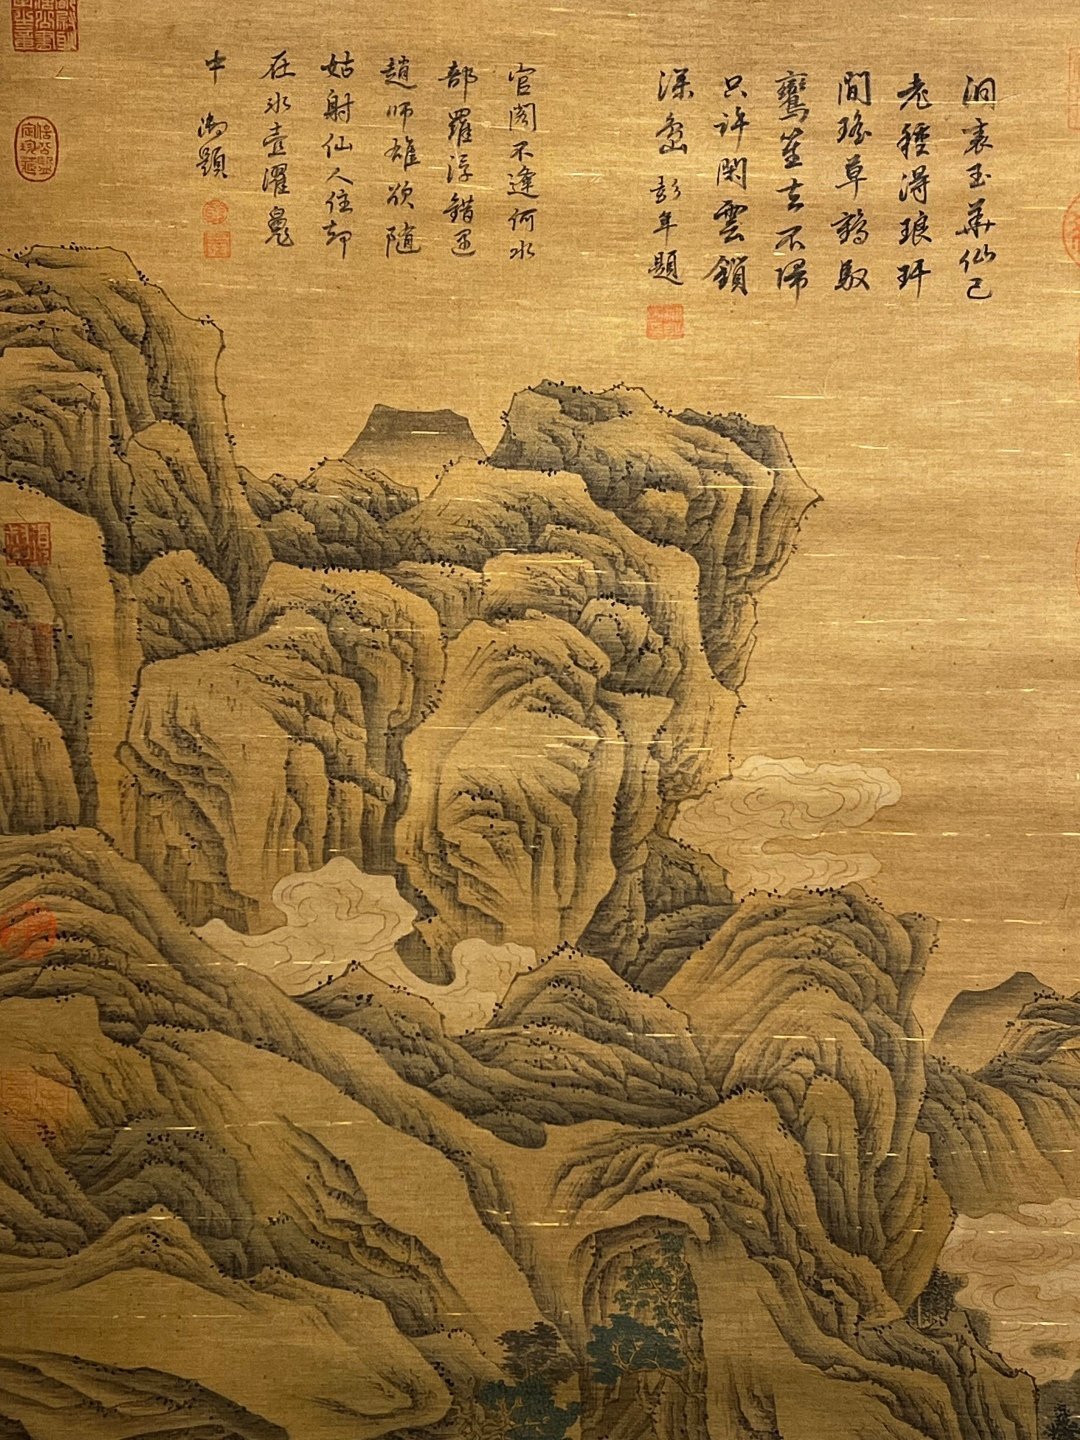 洞裏玉華仙已
老種得琅玕
間瑤草鶴馭
鸞笙去不歸
只許閑雲鎖
深島 彭年題
官閣不逢何水
部羅浮錯遇
趙師雄欲隨
姑射仙人住却
在冰壺濯魄
中 御題